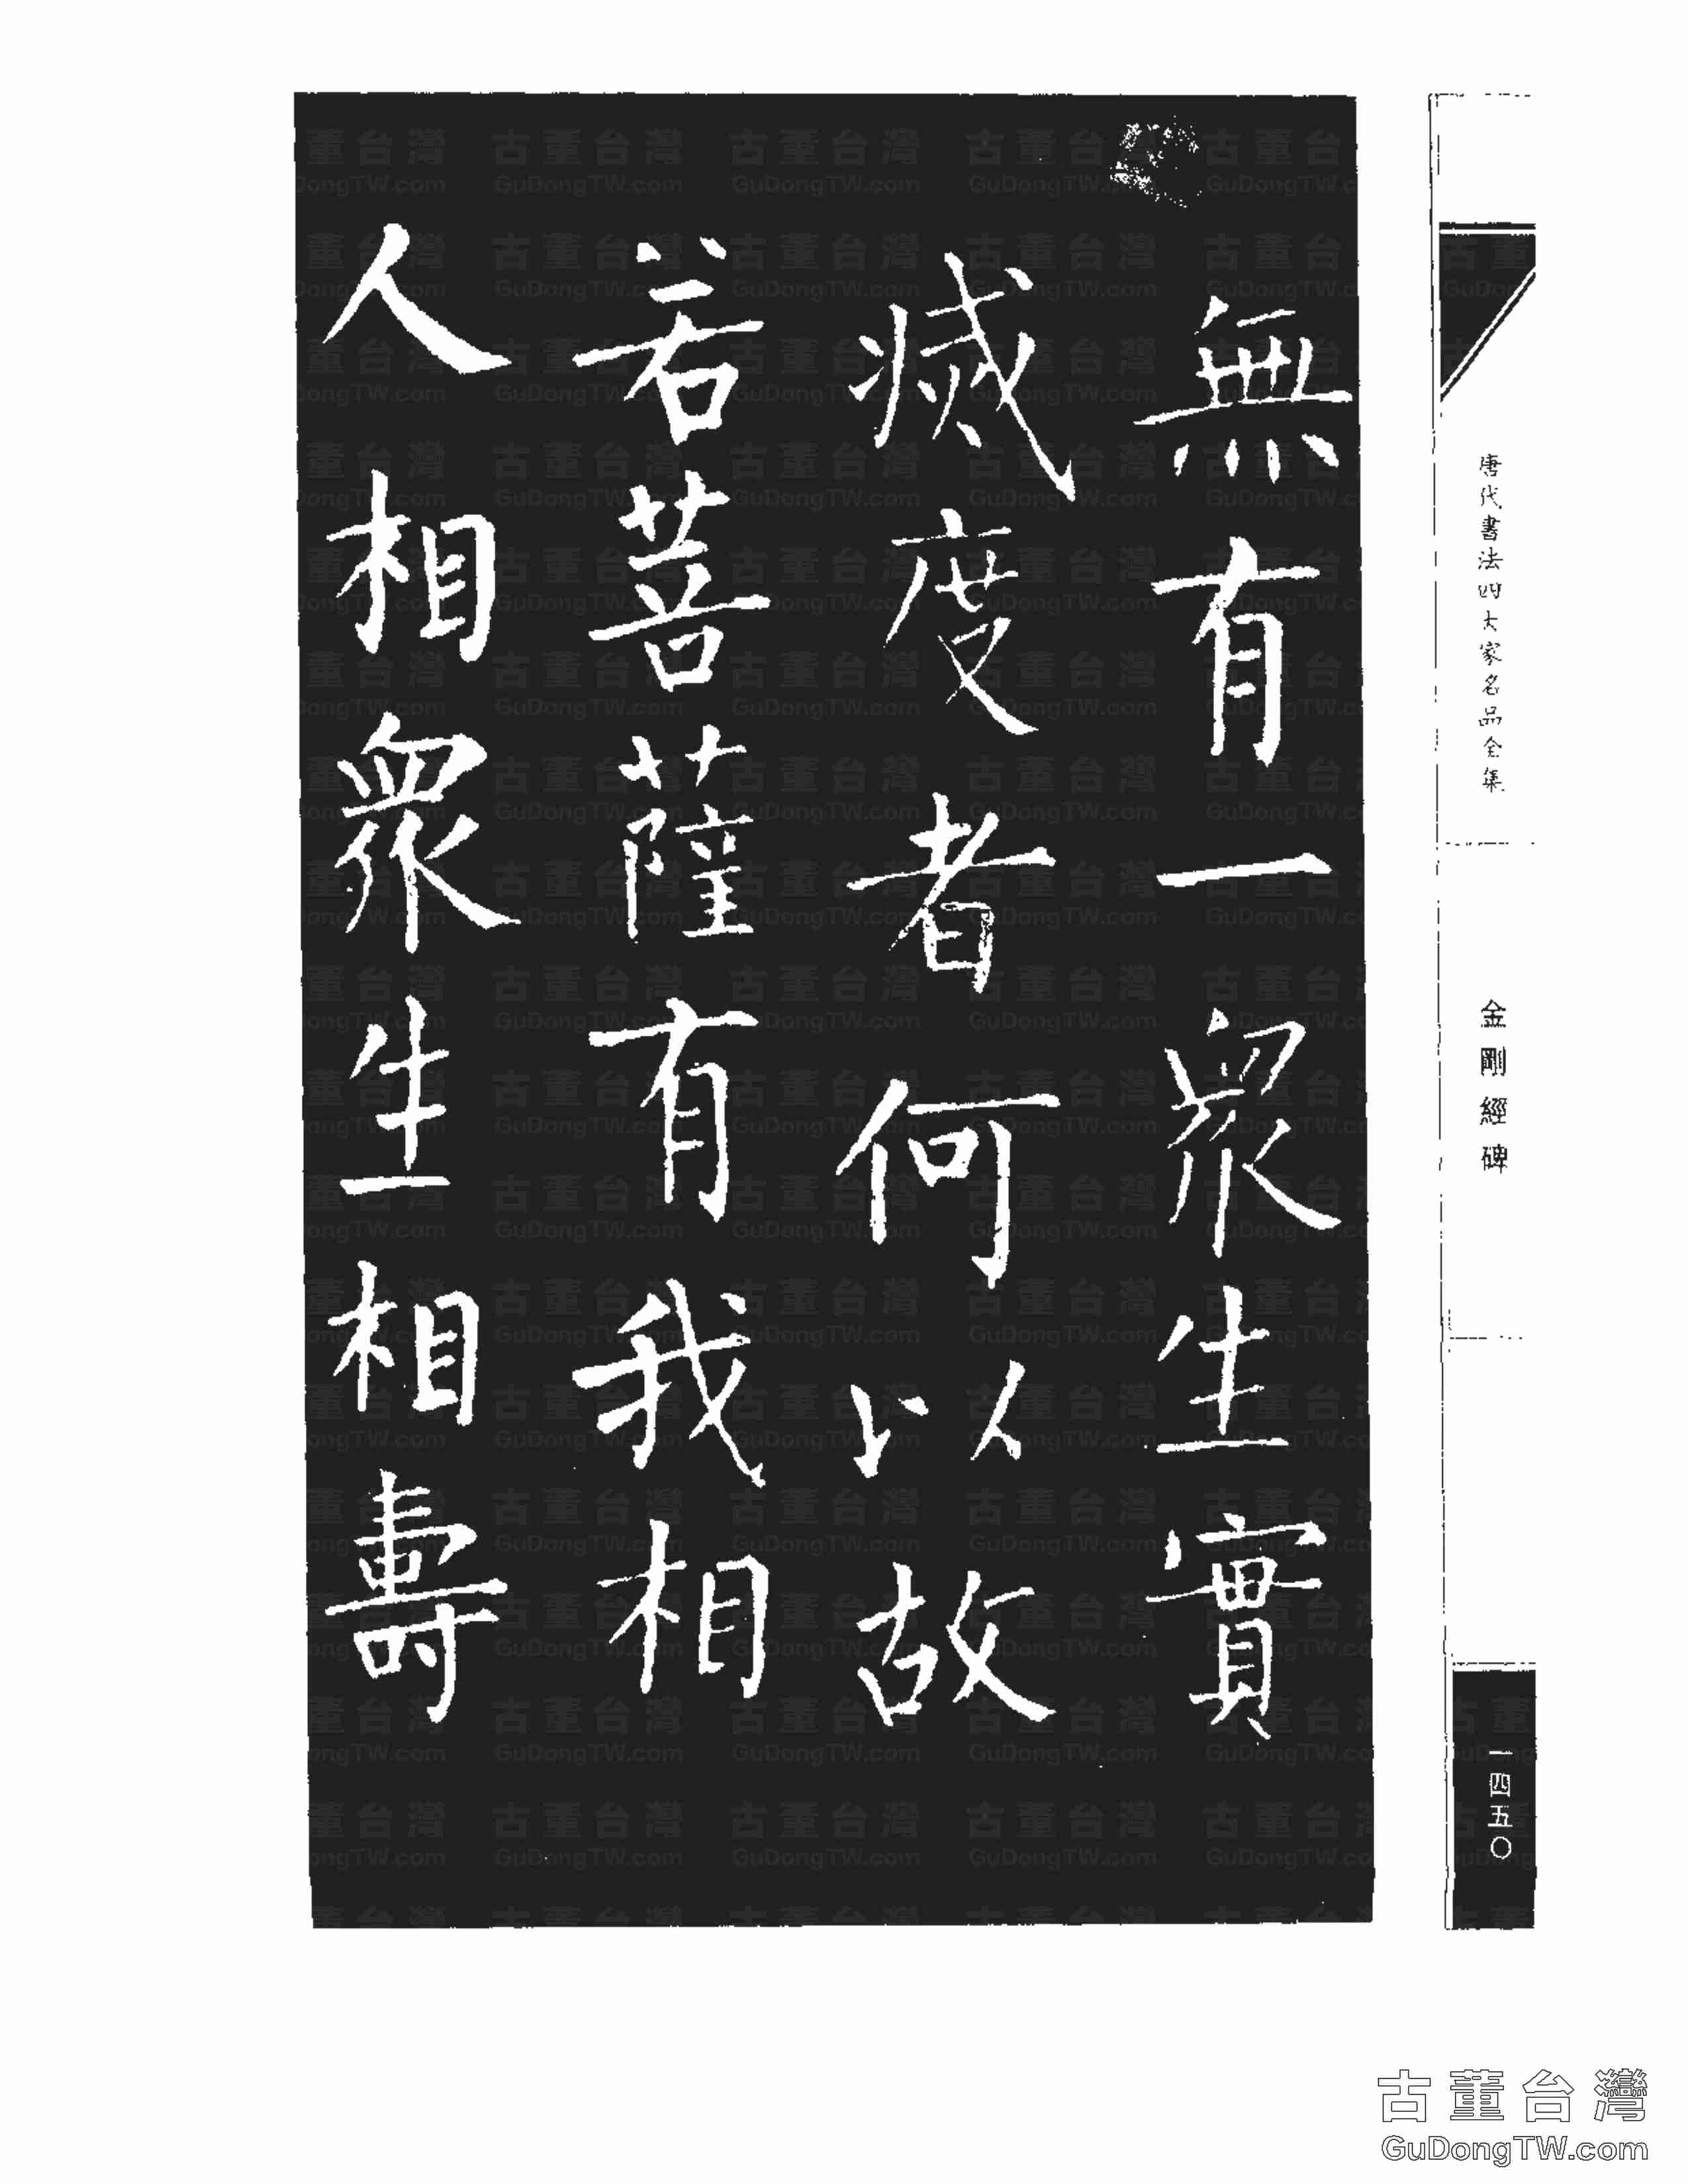 無有一眾生實
滅度者何以故
若菩薩有我相
人相眾生相壽
唐代書法四大家名品全集
金剛經碑
一四五〇
古董台灣
GuDongTW.com